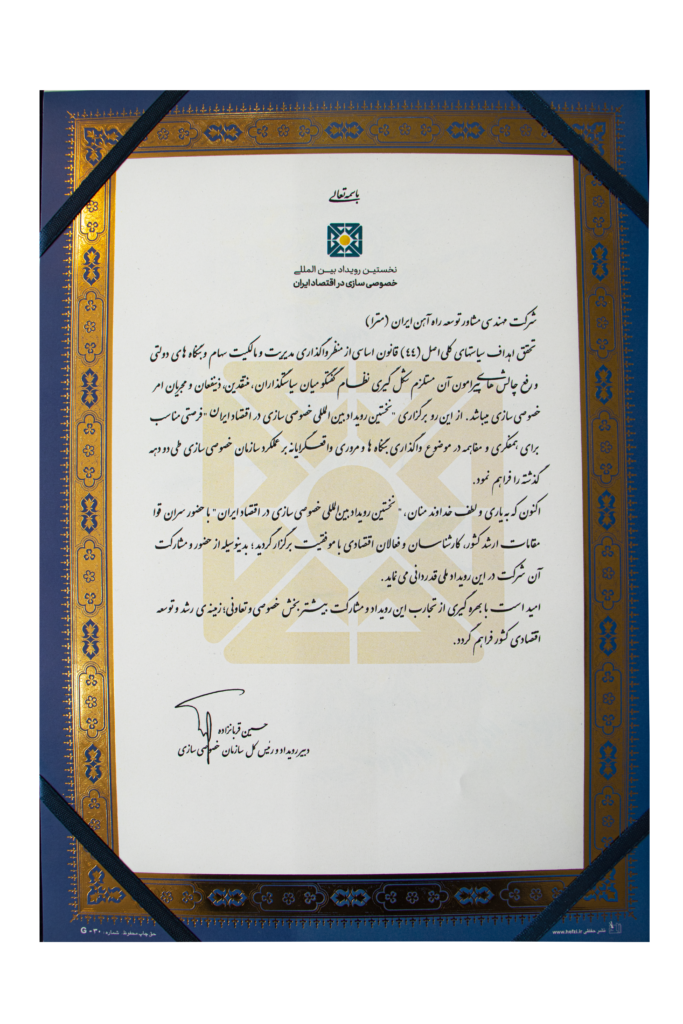 باسمه تعالی
نخستین رویداد بین المللی
خصوصی سازی در اقتصاد ایران
شرکت مهندسی مشاور توسعه راه آهن ایران (مترا)
تحقق اهداف سیاستهای کلی اصل (۴۴) قانون اساسی از منظر واگذاری مدیریت و مالکیت سهام و بنگاه های دولتی
و رفع چالش های پیرامون آن مستلزم شکل گیری نظام گفتگو میان سیاستگذاران، منتقدین، ذینفعان و مجریان امر
خصوصی سازی میباشد. از این رو برگزاری "نخستین رویداد بین المللی خصوصی سازی در اقتصاد ایران" فرصتی مناسب
برای همفکری و مفاهمه در موضوع واگذاری بنگاه ها و مروری واقعگرایانه بر عملکرد سازمان خصوصی سازی طی دو دهه
گذشته را فراهم نمود.
اکنون که به یاری و لطف خداوند منان، "نخستین رویداد بین المللی خصوصی سازی در اقتصاد ایران" با حضور سران قوا
مقامات ارشد کشور، کارشناسان و فعالان اقتصادی با موفقیت برگزار گردید؛ بدینوسیله از حضور و مشارکت
آن شرکت در این رویداد ملی قدردانی می نماید.
امید است با بهره گیری از تجارب این رویداد و مشارکت بیشتر بخش خصوصی و تعاونی؛ زمینه ی رشد و توسعه
اقتصادی کشور فراهم گردد.
حسین قربانزاده
دبیر رویداد و رئیس کل سازمان خصوصی سازی
حق چاپ محفوظ. شماره: G ۰۳۰
نشر هفتلی www.hafst.ir